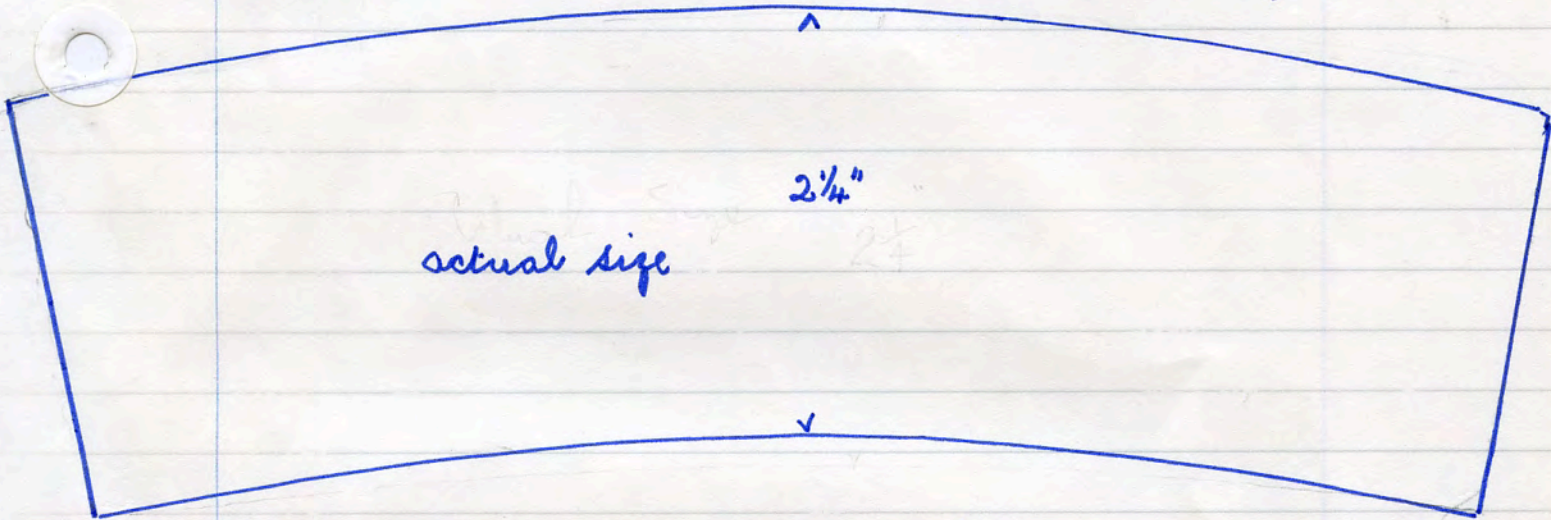 2 1/4"
actual size